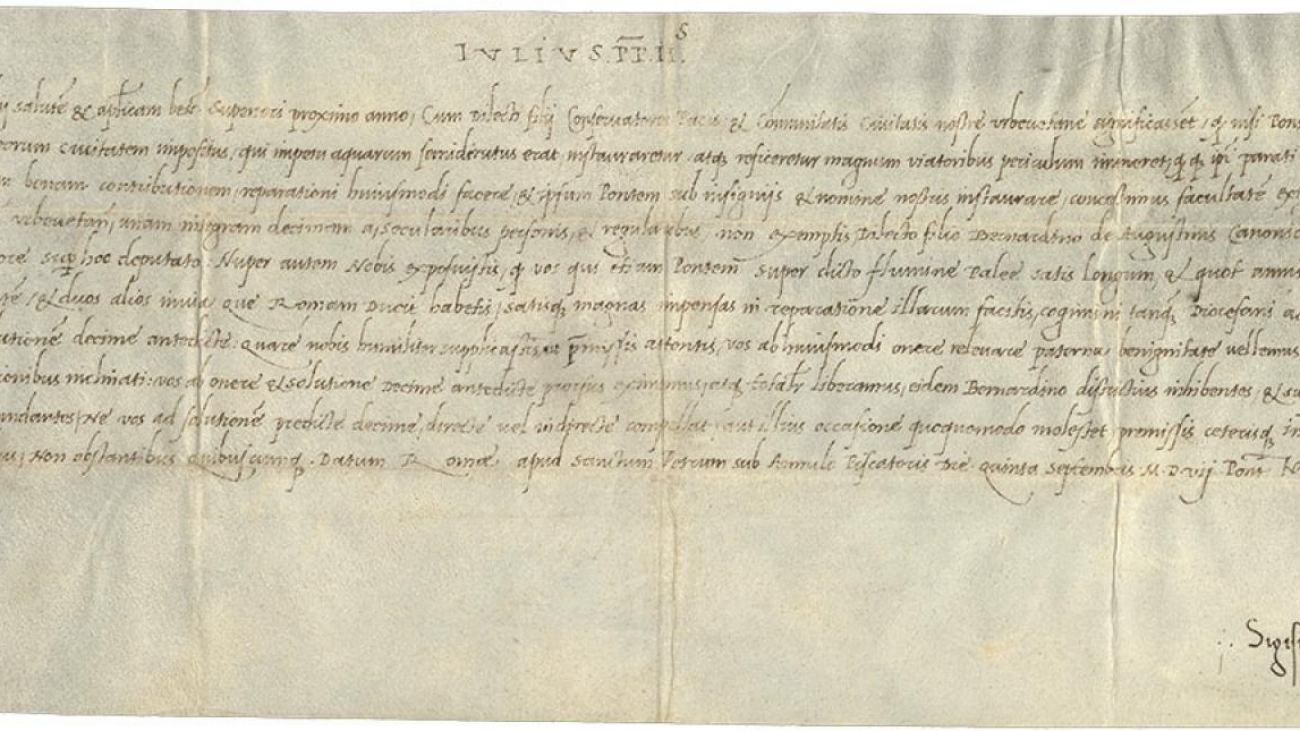 IULIUS.PP.II.S
salutē & aplicam ben̄. Superiori proximo anno, Cum Dilecti filij Conservatores Pacis, & Comunitatis Civitatis nostre urbevetane significassēt, q nisi Pons
civitatem impositus, qui impetu aquarum semidirutus erat, instauraretur, atq reficeretur magnum viatoribus periculum immineret, parati
bonam contributionem, reparationi huiusmodi facere, & ipsum Pontem sub insignijs & nomine nostris instaurare, concessimus facultatē
urbevetan, unam integram decimam a, secularibus personis, & regularibus, non exemptis Dilecto filio Bernardino de Augustinis Canonico
sup hoc deputato: Nuper autem Nobis exposuistis, q vos qui etiam Pontem super dicto flumine Palee satis longum, & quot annis
& duos alios in via que Romam Ducit habetis, satisq magnas impensas in reparatione illarum facitis, cogimini tanq Diocesani
solutionē decime antedicte: Quare nobis humiliter supplicastis ut pmissis attentis, vos ab huiusmodi onere relevare paterna benignitate vellemus
inclinati: vos ab onere & solutione Decime antedicte prorsus eximimus, atq totalr liberamus, eidem Bernardino districtius inhibentes, &
mandantes, Ne vos ad solutionē predicte decime, directe vel indirecte compellat, aut illius occasione quoquomodo molestet, premissis ceterisq
Non obstantibus quibuscunq. Datum Romae apud Sanctum Petrum sub Annulo Piscatoris Die Quinta Septembris M.D.vij Pont N